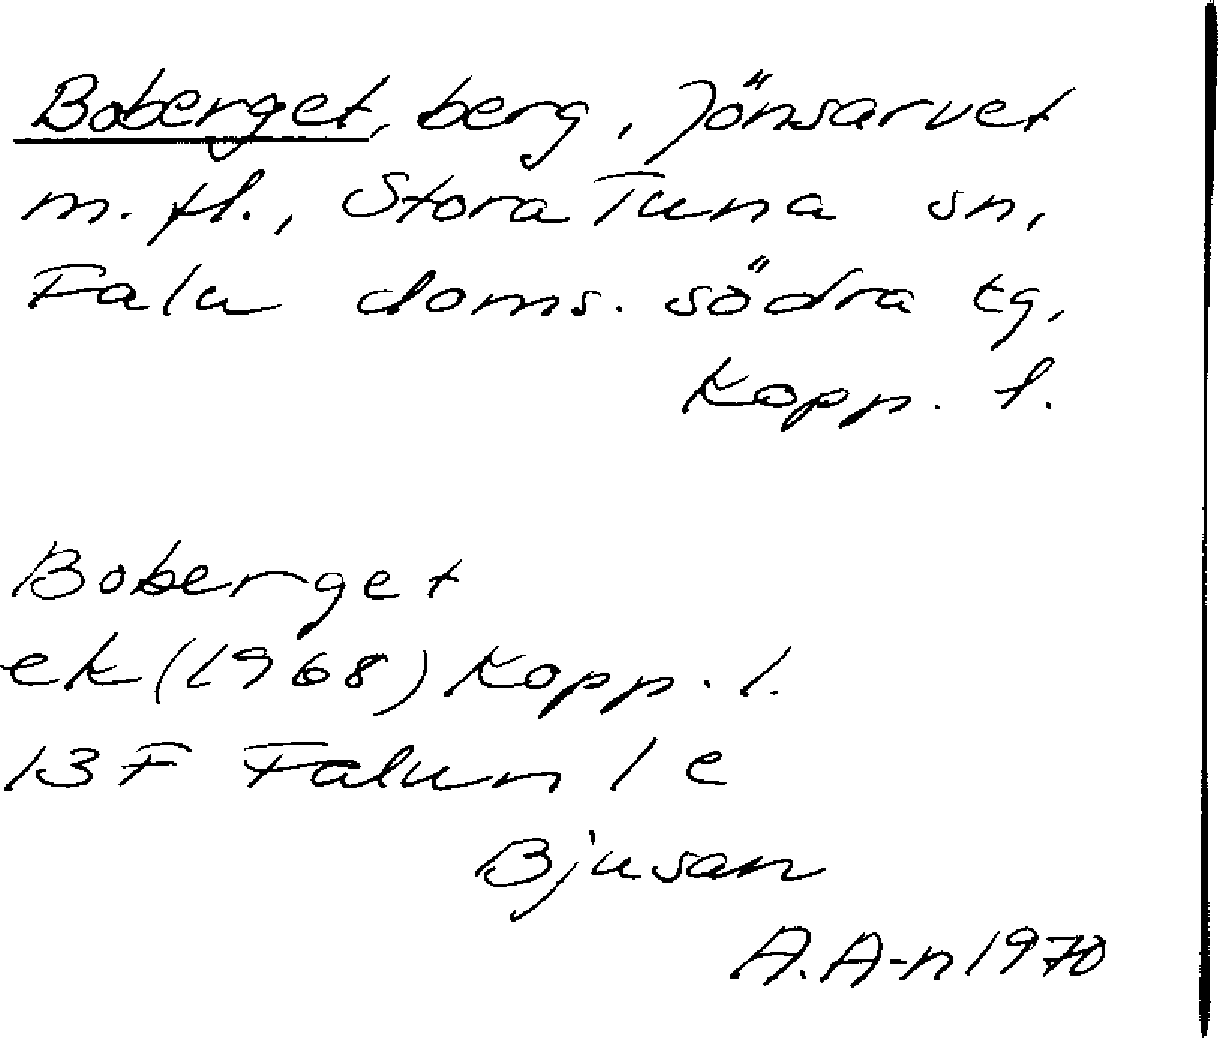 Boberget, berg, Jönsarvet
m. fl., Stora Tuna sn,
Falu doms. södra tg,
Kopp. l.
Boberget
ek (1968) Kopp. l.
13F Falun 1 e
Bjusan
A. A-n 1970